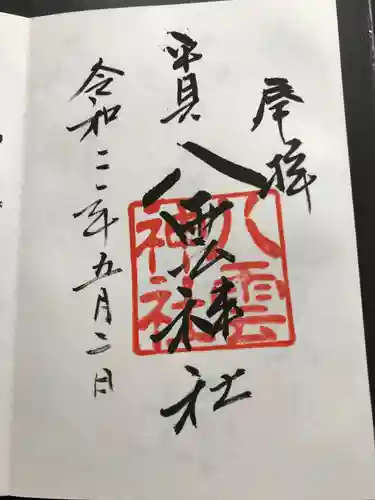 奉拝
平貝
八雲神社
八雲
神社
令和二年五月二日